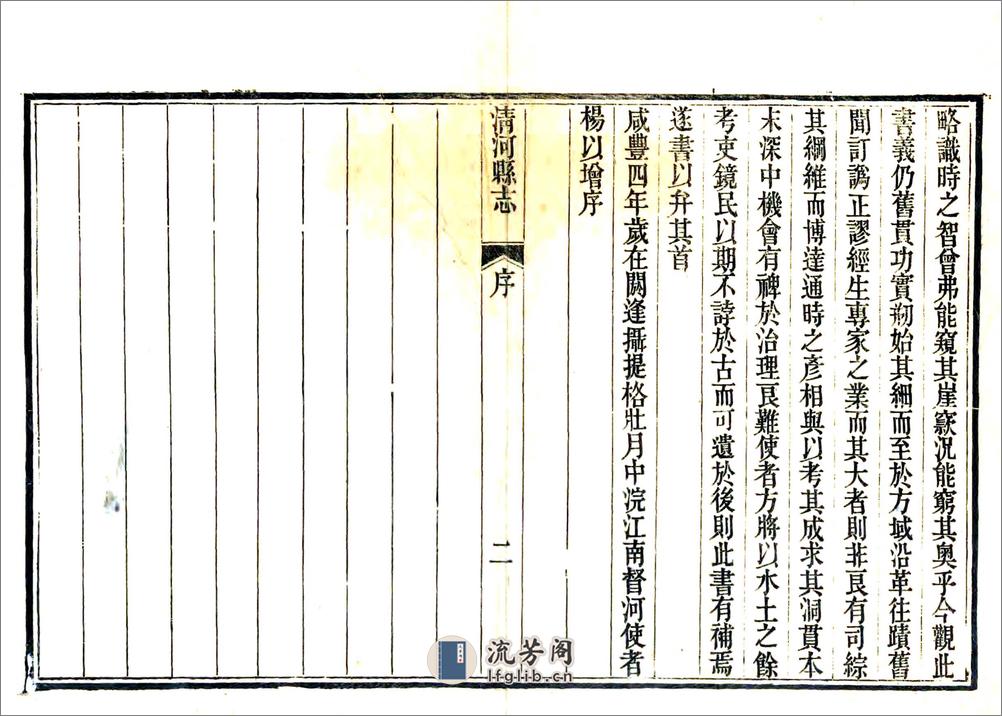 略識時之智曾弗能窺其崖窾況能窮其奧乎今觀此
書義仍舊貫功實剏始其細而至於方域沿革往蹟舊
聞訂譌正謬經生專家之業而其大者則非良有司綜
其綱維而博達通時之彥相與以考其成求其洞貫本
末深中機會有裨於治理良難使者方將以水土之餘
考吏鏡民以期不誖於古而可遺於後則此書有補焉
遂書以弁其首
咸豐四年歲在閼逢攝提格壯月中浣江南督河使者
楊以增序
清河縣志
序
二
流芳阁
lfglib.cn